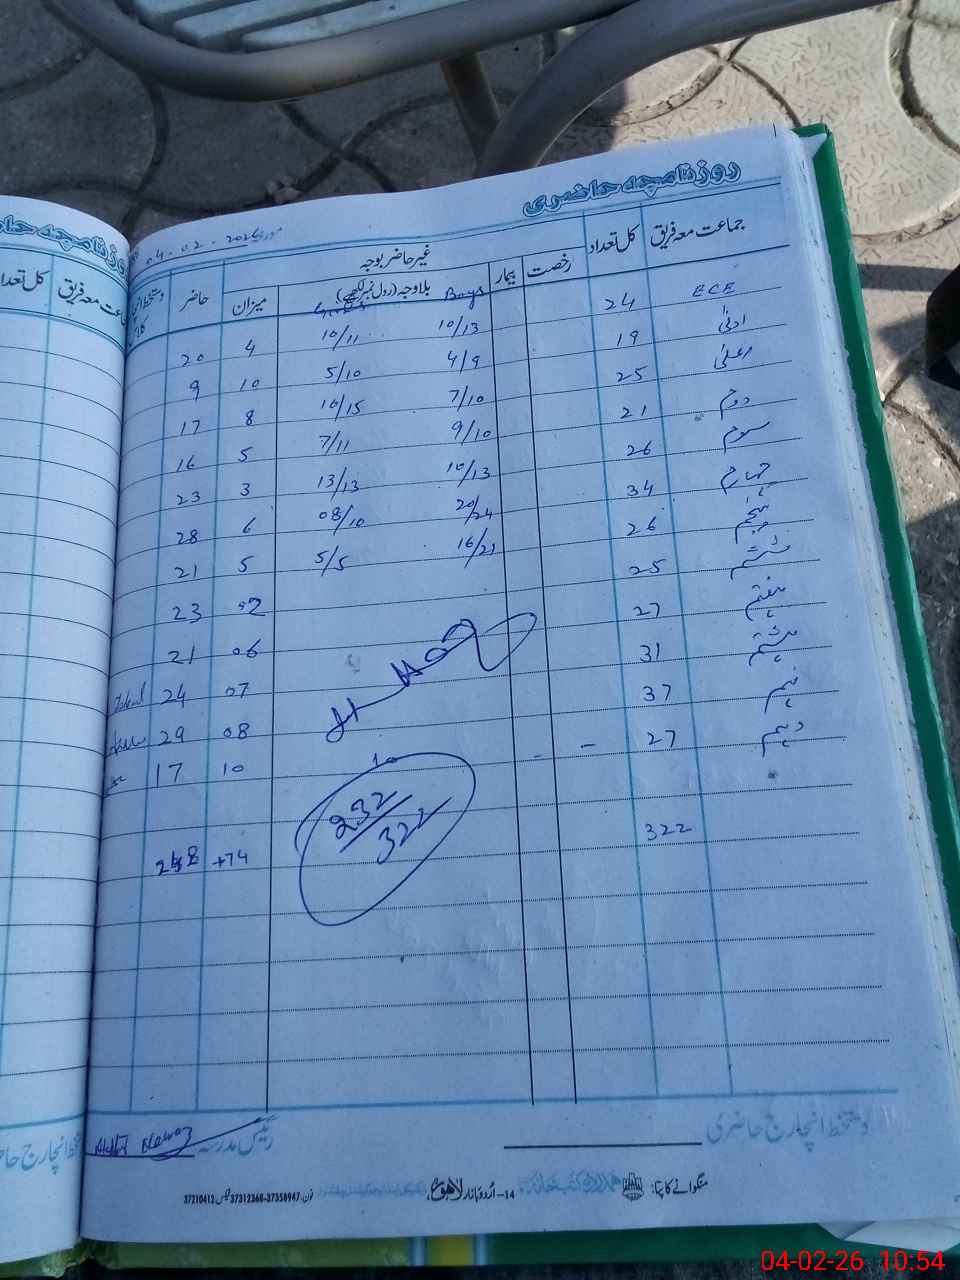 روزنامچہ حاضری
مورخہ 04-02-2026
جماعت معہ فریق کل تعداد غیر حاضر بوجہ حاضر
رخصت بیمار بلاوجہ (رول نمبر لکھیے) میزان
Boys
ECE 24 10/13 10/11 4 20
ادنیٰ 19 4/9 5/10 10 9
اعلیٰ 25 7/10 10/15 8 17
دوم 21 9/10 7/11 5 16
سوم 26 10/13 13/13 3 23
چہارم 34 20/24 08/10 6 28
پنجم 26 16/21 5/5 5 21
ششم 25 02 23
ہفتم 27 06 21
ہشتم 31 07 24
نہم 37 08 29
دہم 27 - - 10 10 17
322 74
232/322
دستخط انچارج حاضری رئیس مدرسہ
منگوانے کا پتہ: 14-اردو بازار لاہور فون: 37358947-37312368 فیکس 37210413
کل تعداد جماعت معہ فریق
04-02-26 10:54